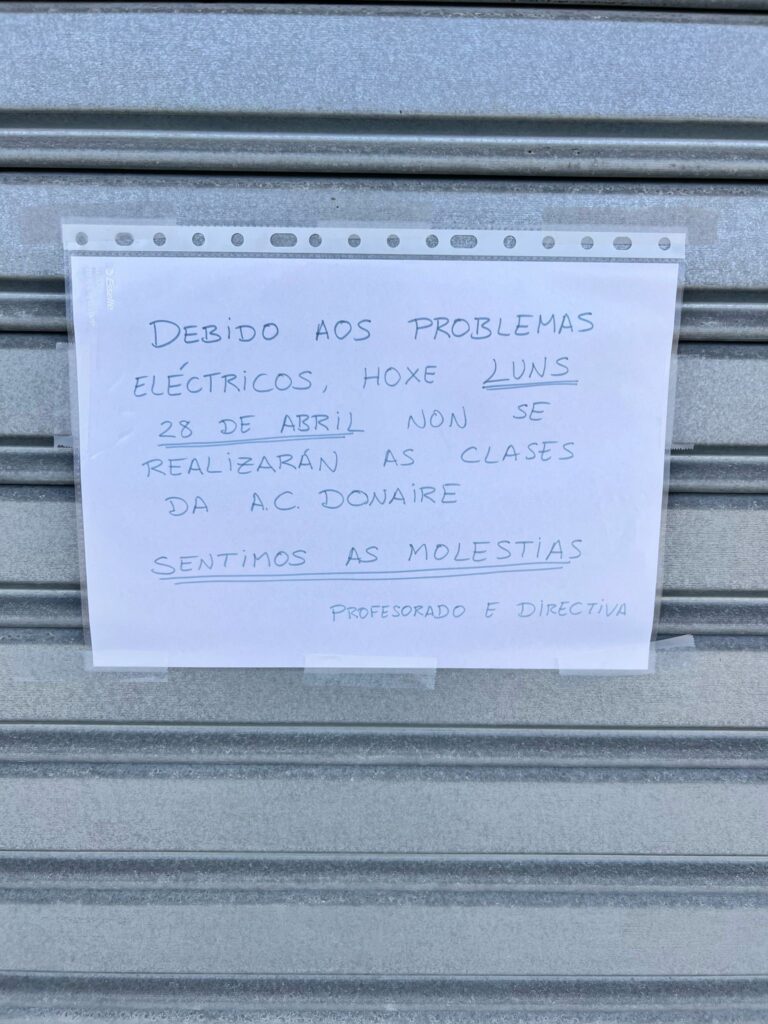 DEBIDO AOS PROBLEMAS
ELÉCTRICOS, HOXE LUNS
28 DE ABRIL NON SE
REALIZARÁN AS CLASES
DA A.C. DONAIRE
SENTIMOS AS MOLESTIAS
PROFESORADO E DIRECTIVA